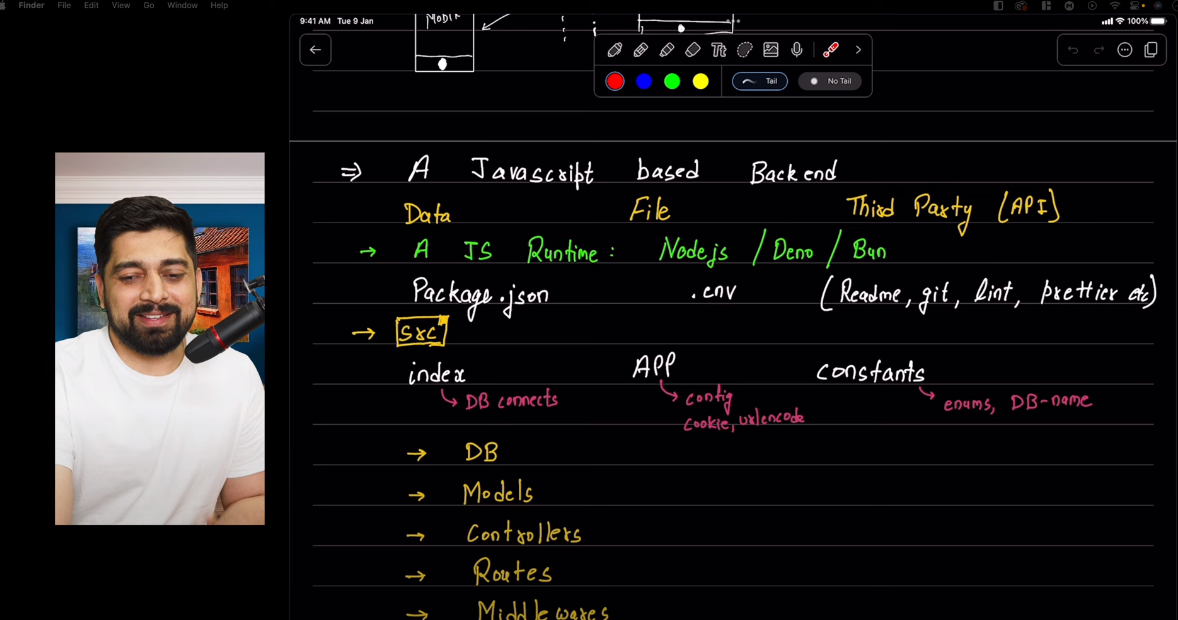 Finder File Edit View Go Window Help
9:41 AM Tue 9 Jan
100%
Tt
Tail No Tail
⇒ A Javascript based Backend
Data File Third Party (API)
→ A JS Runtime: Nodejs / Deno / Bun
Package.json .env (Readme, git, lint, prettier etc)
→ src
index APP constants
↳ DB connects ↳ config ↳ enums, DB-name
cookie, urlencode
→ DB
→ Models
→ Controllers
→ Routes
→ Middlewares